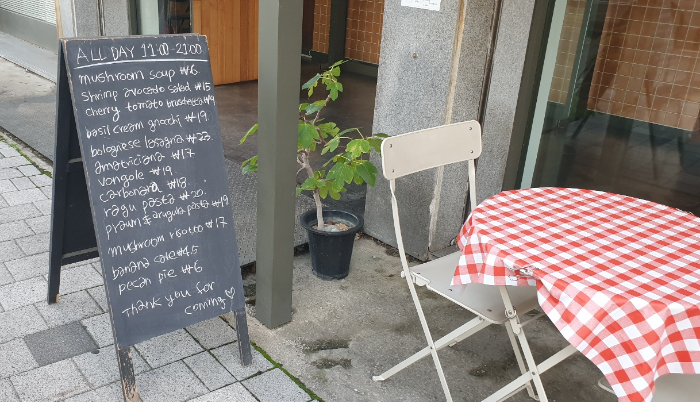 ALL DAY 11:00-21:00
mushroom soup ₩6
shrimp avocado salad ₩15
cherry tomato bruschetta ₩9
basil cream gnocchi ₩19
bolognese lasagna ₩23
amatriciana ₩17
vongole ₩19
carbonara ₩18
ragu pasta ₩20
prawn & arugula pasta ₩19
mushroom risotto ₩17
banana cake ₩4.5
pecan pie ₩6
Thank you for
coming ♡